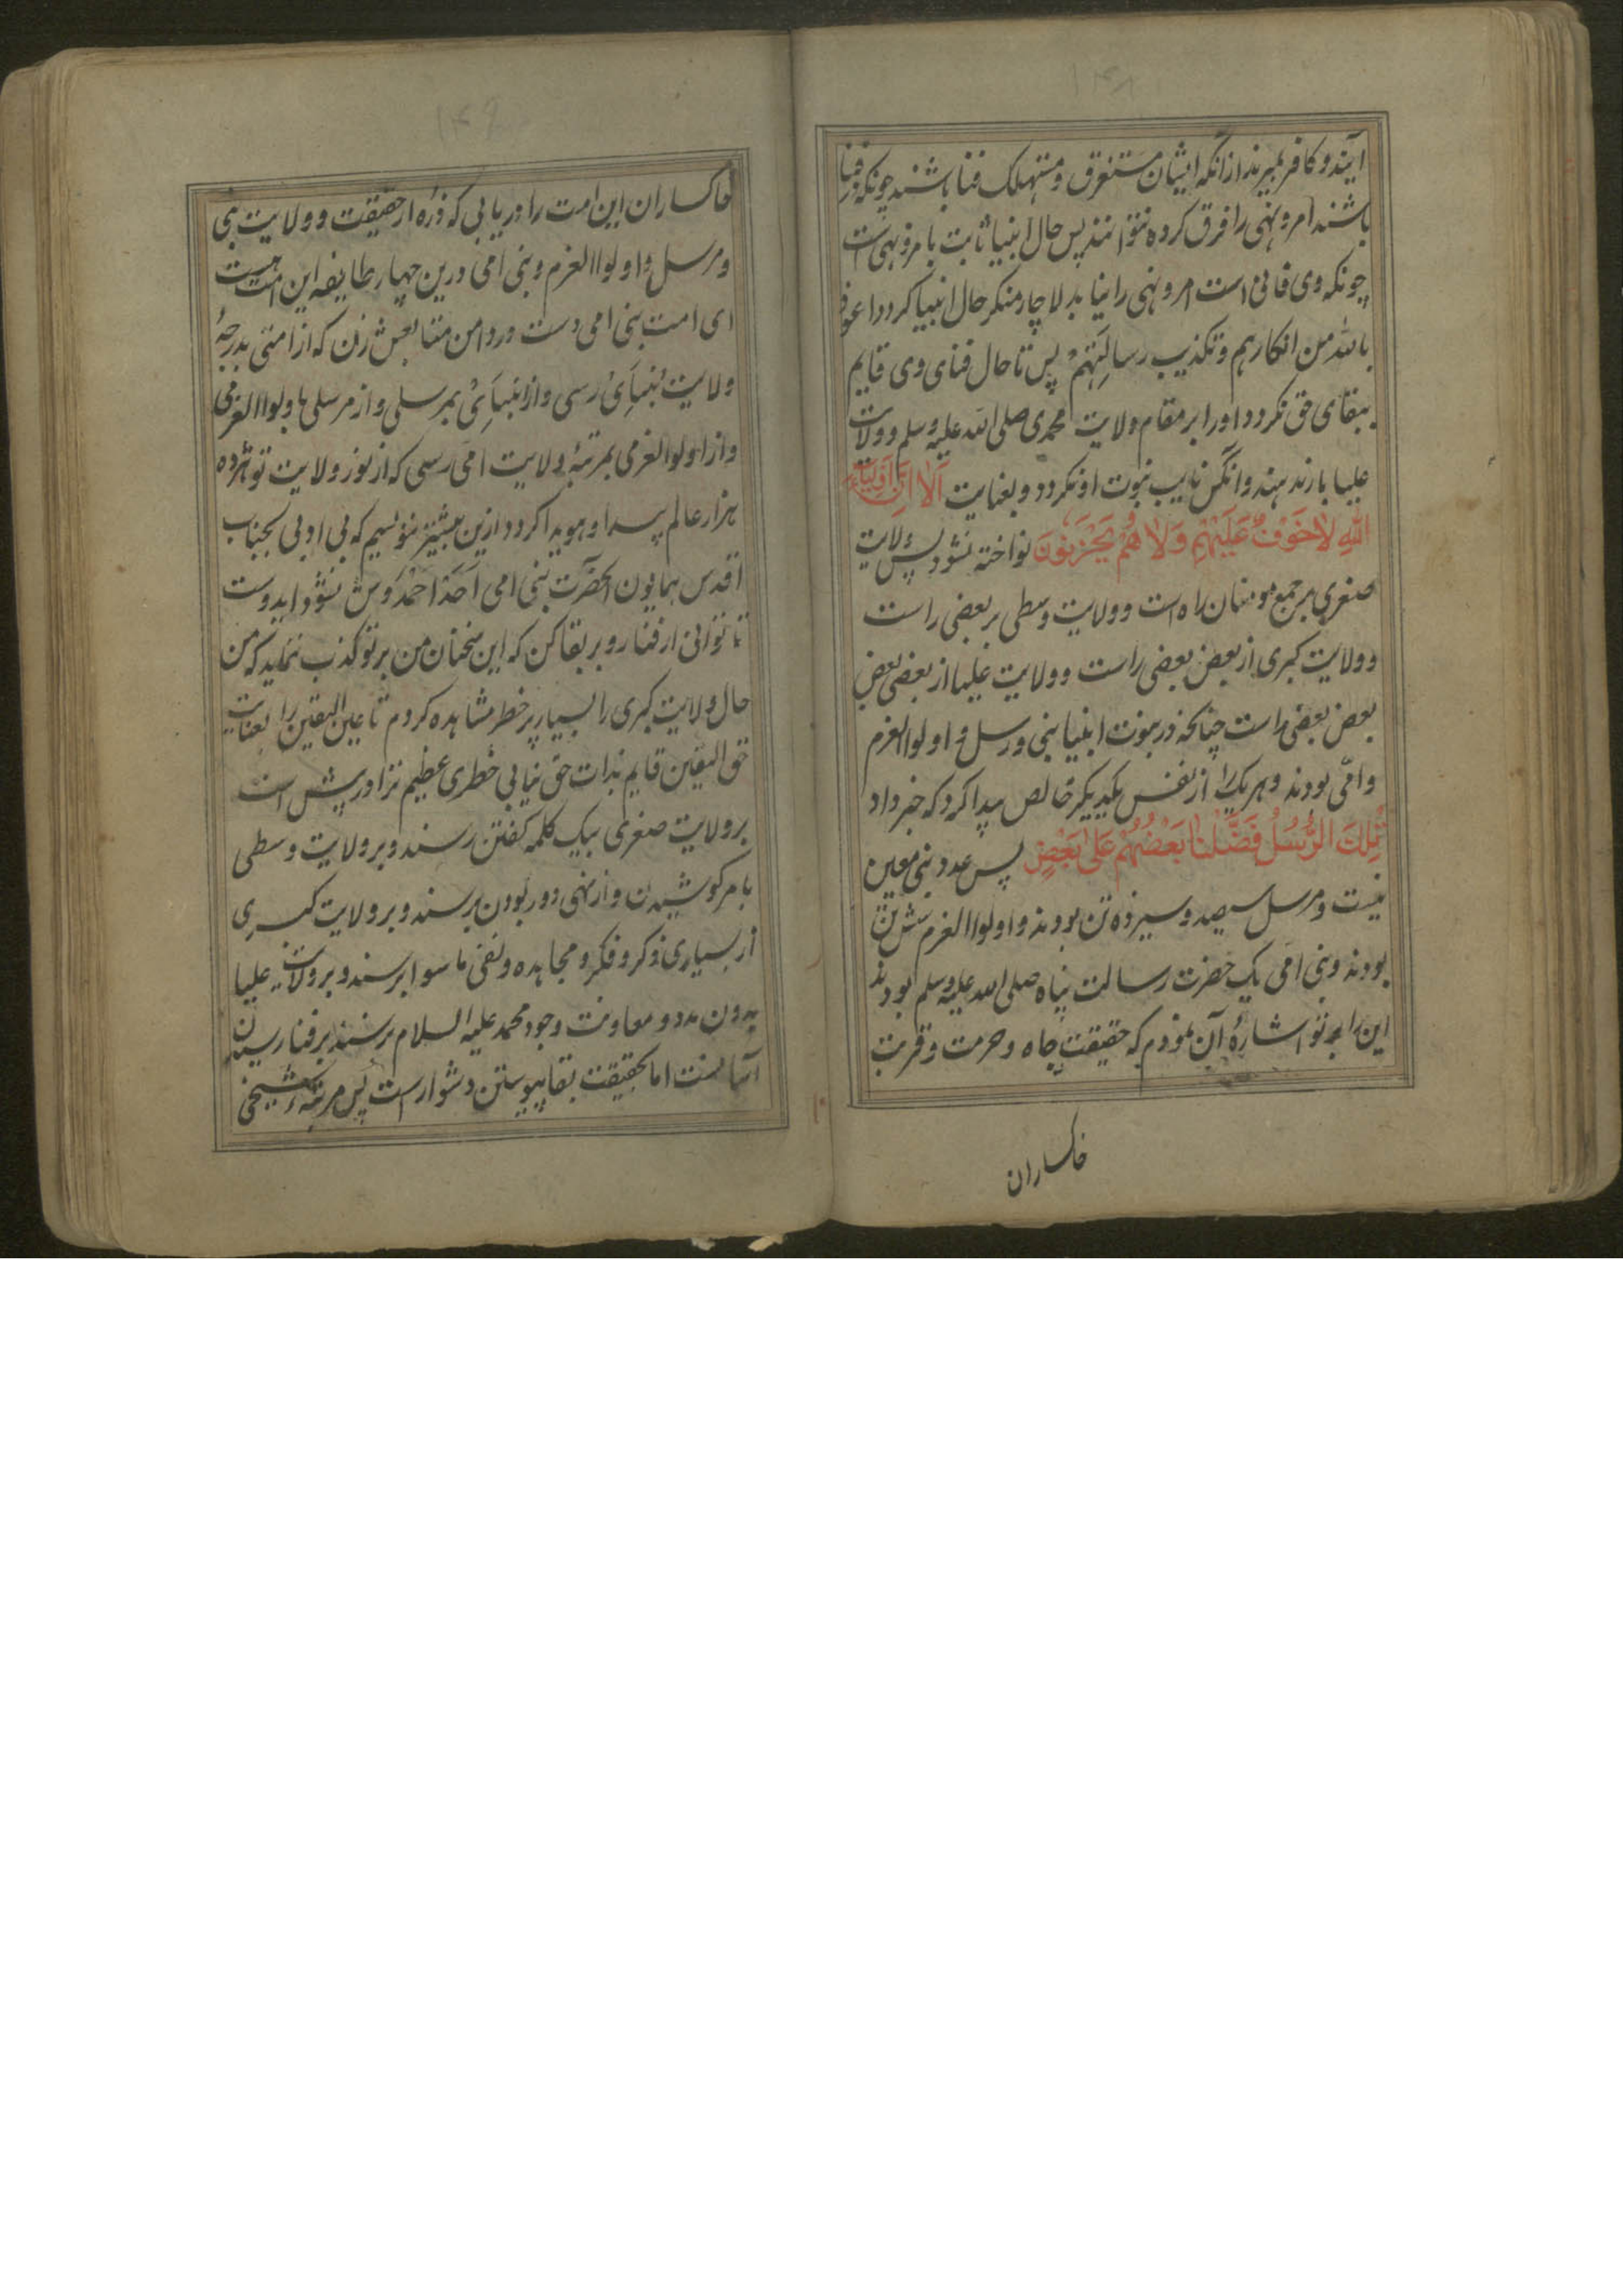 ۱۴۸
آیند و کافر بمیرند از آنکه ایشان مستغرق و مستهلک فنا باشند چونکه در فنا
باشند امر و نهی را فرق کرده نتوانند پس حال انبیا ثابت با امر و نهی است
چونکه وی فانی است امر و نهی را نیابد لاچار منکر حال انبیا کردد اعوذ
بالله من انکارهم و تکذیب رسالتهم پس تا حال فنای وی قایم
ببقای حق نکردد او را بر مقام ولایت محمدی صلی الله علیه وسلم و ولایت
علیا بار ندهند و انکس نایب نبوت او نکردد و بعنایت اَلا اِنَّ اَولِیَاءَ
اللهِ لا خَوْفٌ عَلَیْهِمْ وَلا هُمْ یَحْزَنُونَ نواخته نشود پس ولایت
صغری بر جمع مومنان راه است و ولایت وسطی بر بعضی راست
و ولایت کبری از بعض بعضی راست و ولایت علیا از بعضی بعض
بعض بعضی راست چنانچه در نبوت انبیا نبی و رسل و اولوالعزم
و امّی بودند و هر یک را از نفس یکدیکر خالص پیدا کرد که خبر داد
تِلکَ الرُّسُلُ فَضَّلْنا بَعْضُهُمْ عَلیٰ بَعْضٍ پس عدد نبی معین
نیست و مرسل سیصد و سیزده تن بودند و اولواالعزم شش تن
بودند و نبی امی یک حضرت رسالت پناه صلی الله علیه وسلم بودند
این را بر تو اشارهٔ آن نمودم که حقیقت جاه و حرمت و قربت
خاکساران
۱۴۹
خاکساران این امت را دریابی که ذره از حقیقت و ولایت نبی
و مرسل و اولواالعزم و نبی امی درین چهار طایفه این امت هست
ای امت نبی امی دست در دامن متابعتش زن که از امتی بدرجهٔ
ولایت بنبیائی رسی و از انبیائی بمرسلی و از مرسلی باولواالعزمی
و از اولوالعزمی بمرتبهٔ ولایت امی رسی که از نور ولایت تو هژده
هزار عالم پیدا و هویدا کردد ازین بیشتر ننویسیم که بی ادبی بجناب
اقدس همایون آنحضرت نبی امی احد احمد وش نشود ایدوست
تا توانی از فنا رو بر بقا کن که این سخنان من بر تو کذب ننماید که من
حال ولایت کبری را بسیار پر خطر مشاهده کردم تا عین الیقین را بعنایت
حق الیقین قایم بذات حق نیابی خطری عظیم ترا در پیش است
بر ولایت صغری بیک کلمه کفتن رسند و بر ولایت وسطی
بامر کوشیدن و از نهی دور بودن برسند و بر ولایت کبری
از بسیاری ذکر و فکر و مجاهده و نفی ما سوا برسند و بر ولایت علیا
بدون مدد و معاونت وجود محمد علیه السلام نرسند بر فنا رسیدن
آسانست اما بحقیقت بقا پیوستن دشوار است پس مرتبهٔ شیخی